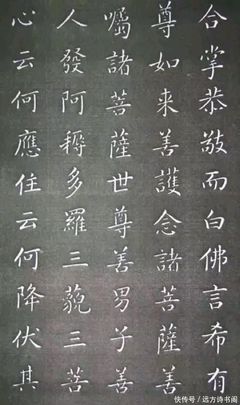 合掌恭敬而白佛言希有
尊如来善護念諸菩薩善
囑諸菩薩世尊善男子善
人發阿耨多羅三藐三菩
心云何應住云何降伏其
快传号 / 远方诗书阁